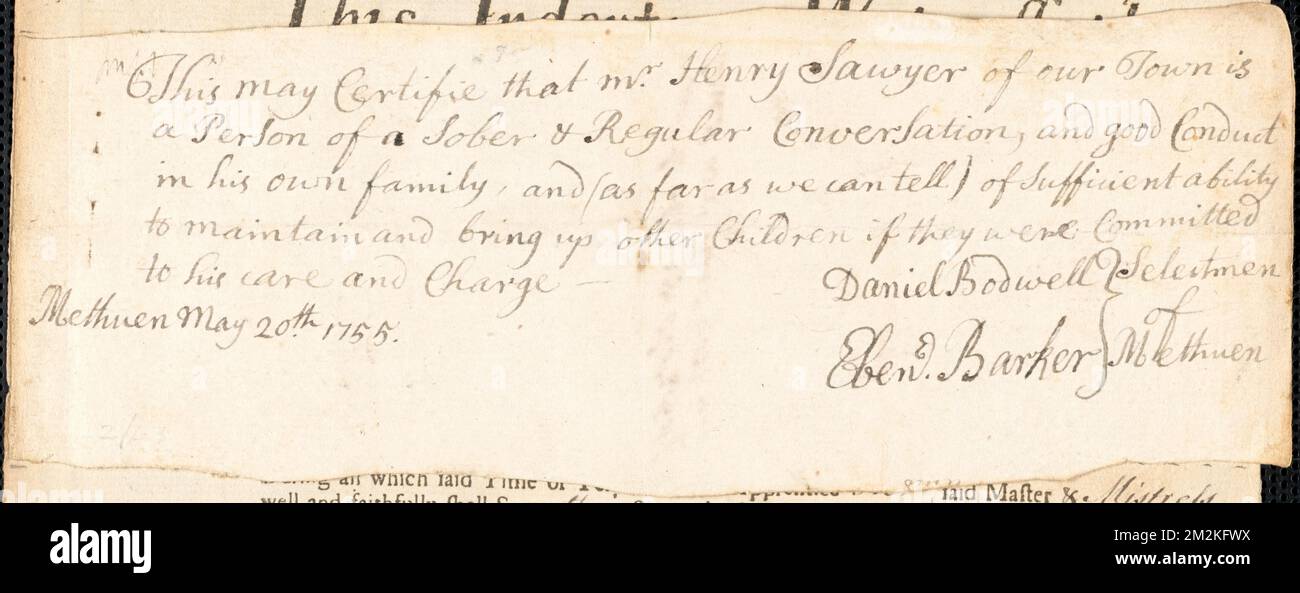 This Indent
This may Certifie that mr. Henry Sawyer of our Town is
a Person of a Sober & Regular Conversation, and good Conduct
in his own family, and (as far as we can tell) of Sufficient ability
to maintain and bring up other Children if they were Committed
to his care and Charge —
Daniel Bodwell } Selectmen
of
Methuen May 20th. 1755.
Ebenr. Barker } Methuen
which said Time or
said Master & Mistress
well and faithfully shall
alamy
Image ID: 2M2KFWX
www.alamy.com